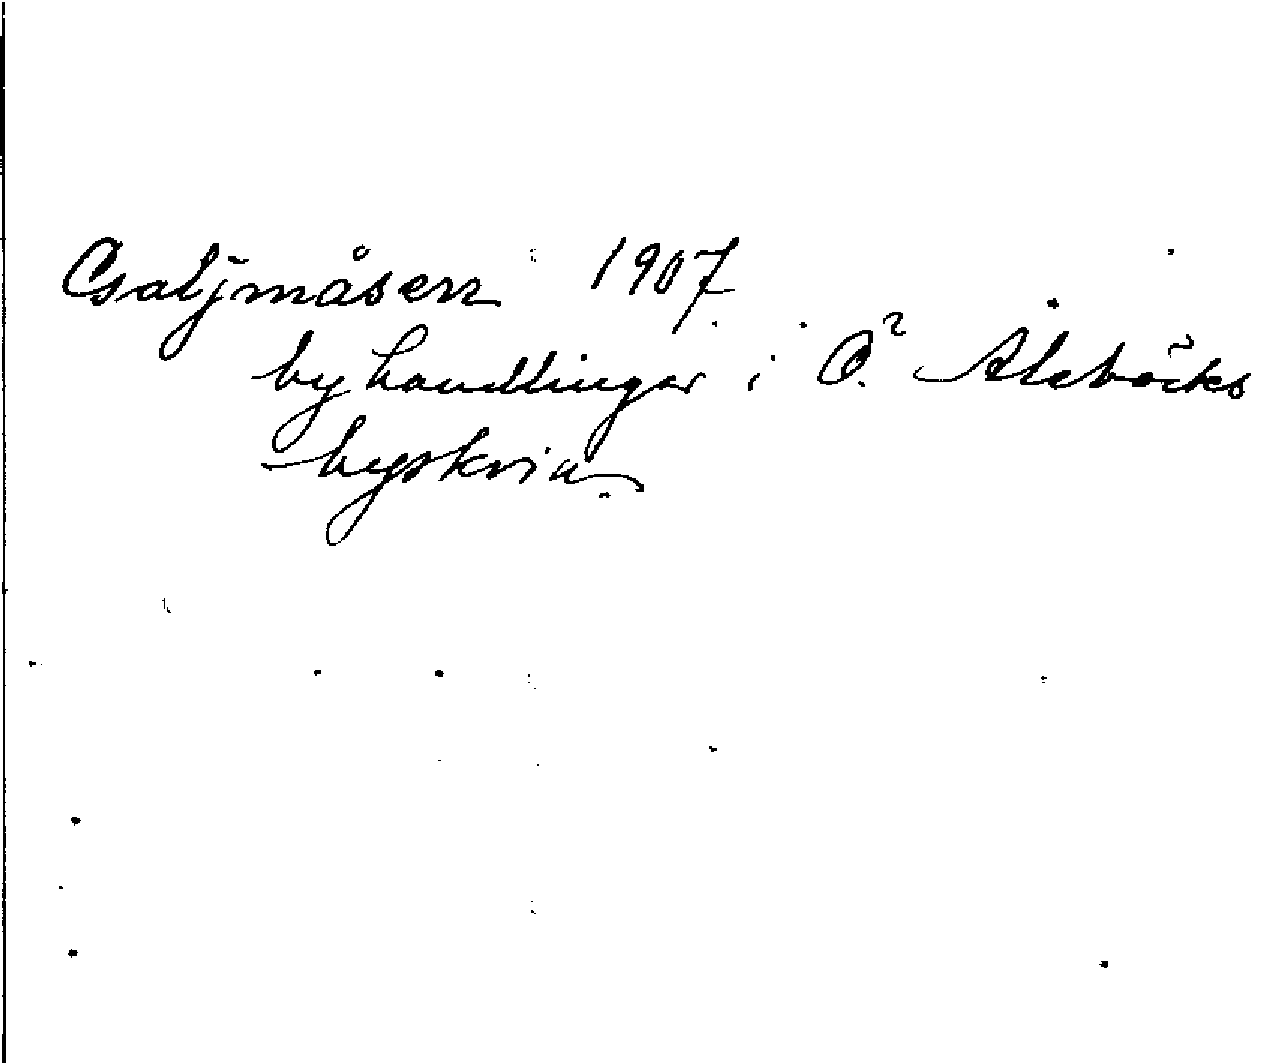 Csaljmåsen 1907
byhandlingar i Ö. Ålebäcks
byskrin.